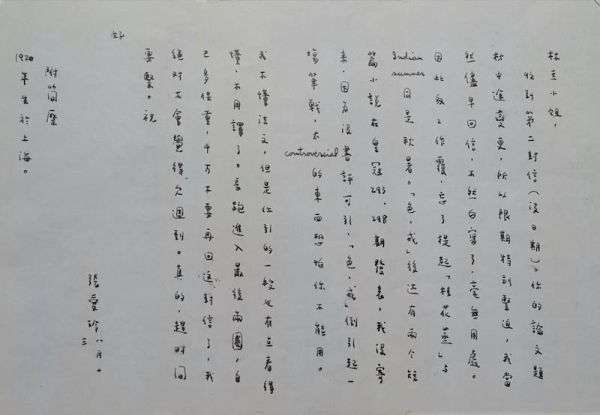 林至小姐,
收到第二封信(沒日期)。你的論文題
材中途變更,所以限期特別緊迫,我當
然儘早回信,不然白寫了,毫無用處。
因此匆匆作覆,忘了提起「桂花蒸」與
Indian summer 同是秋暑。「色,戒」後還有兩個短
篇小說在皇冠293、298期發表,我沒寄
來,因為沒書評可引,「色,戒」倒引起一
場筆戰,太 controversial 的東西恐怕你不能用。
我不懂法文,但是你引的一段也有點看得
懂,不用譯了。長跑進入最後兩圈,自
己多保重,千萬不要再回這封信了,我
絕對不會覺得欠週到。真的,趕時間
要緊。祝
好
張愛玲 八月十三
附簡歷
1920年生於上海。